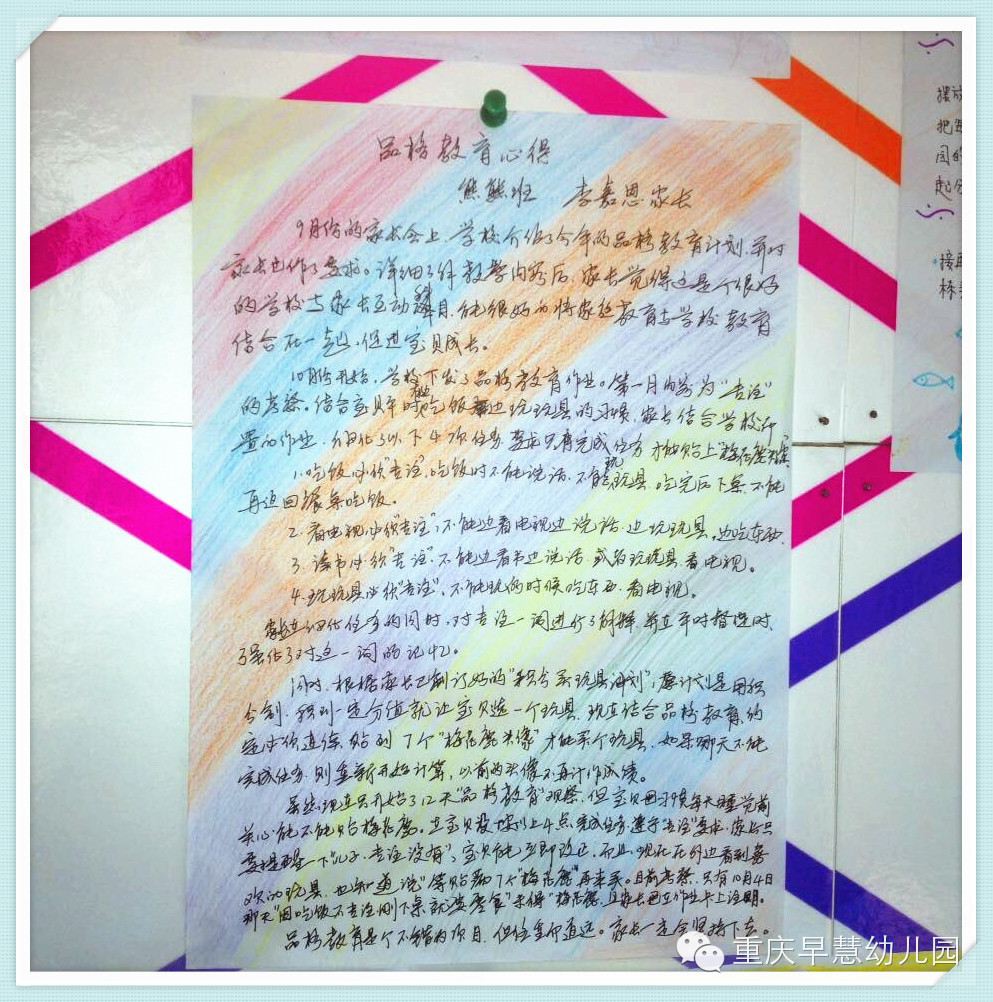 品格教育心得
熊熊班 李嘉思家长
9月份的家长会上,学校介绍了今年的品格教育计划,并对
家长也作了要求。详细了解教学内容后,家长觉得这是个很好
的学校与家长互动项目,能很好的将家庭教育与学校教育
结合在一起,促进宝贝成长。
10月份开始,学校下发了品格教育作业。第一月内容为"专注"
的考察。结合宝贝平时吃饭边玩玩具的习惯,家长结合学校布
置的作业,细化了以下4项任务,要求只有完成任务才能贴上"梅花鹿头像"
1.吃饭必须"专注",吃饭时不能说话,不能玩玩具,吃完后下桌,不能
再返回餐桌吃饭。
2.看电视必须"专注",不能边看电视边说话,边玩玩具,边吃东西。
3.读书必须"专注",不能边看书边说话,或者玩玩具,看电视。
4.玩玩具必须"专注",不能玩的时候吃东西,看电视。
家长在细化任务的同时,对专注一词进行了解释,并在平时督促时,
强化了对这一词的记忆。
同时,根据家长已制订好的"积分买玩具计划",该计划是用积
分制,积到一定分值就让宝贝选一个玩具,现在结合品格教育,约
定必须连续贴到7个"梅花鹿头像"才能买个玩具,如果哪天不能
完成任务,则重新开始计算,以前的头像不再计作成绩。
虽然现在只开始了12天"品格教育"观察,但宝贝每天睡觉前
关心能不能贴梅花鹿。在宝贝没按以上4点完成任务,遵守"专注"要求,家长只
要提醒一下"儿子,专注没有",宝贝能立即改正,而且,现在在外边看到喜
欢的玩具,也知道说"等贴满7个"梅花鹿"再来买。目前考察,只有10月4日
那天"因吃饭不专注刚下桌就要零食"未得"梅花鹿",且家长已在作业卡上注明。
品格教育是个不错的项目,但任重而道远。家长一定会坚持下去。
摆放
把
园的
起
接
林
重庆早慧幼儿园